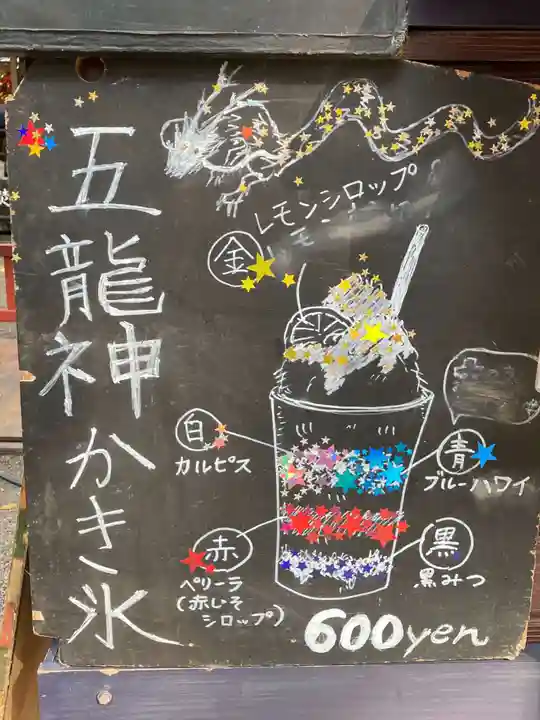 五龍神かき氷
レモンシロップ
金
白
カルピス
青
ブルーハワイ
赤
ペリーラ
(赤しそ
シロップ)
黒
黒みつ
600yen